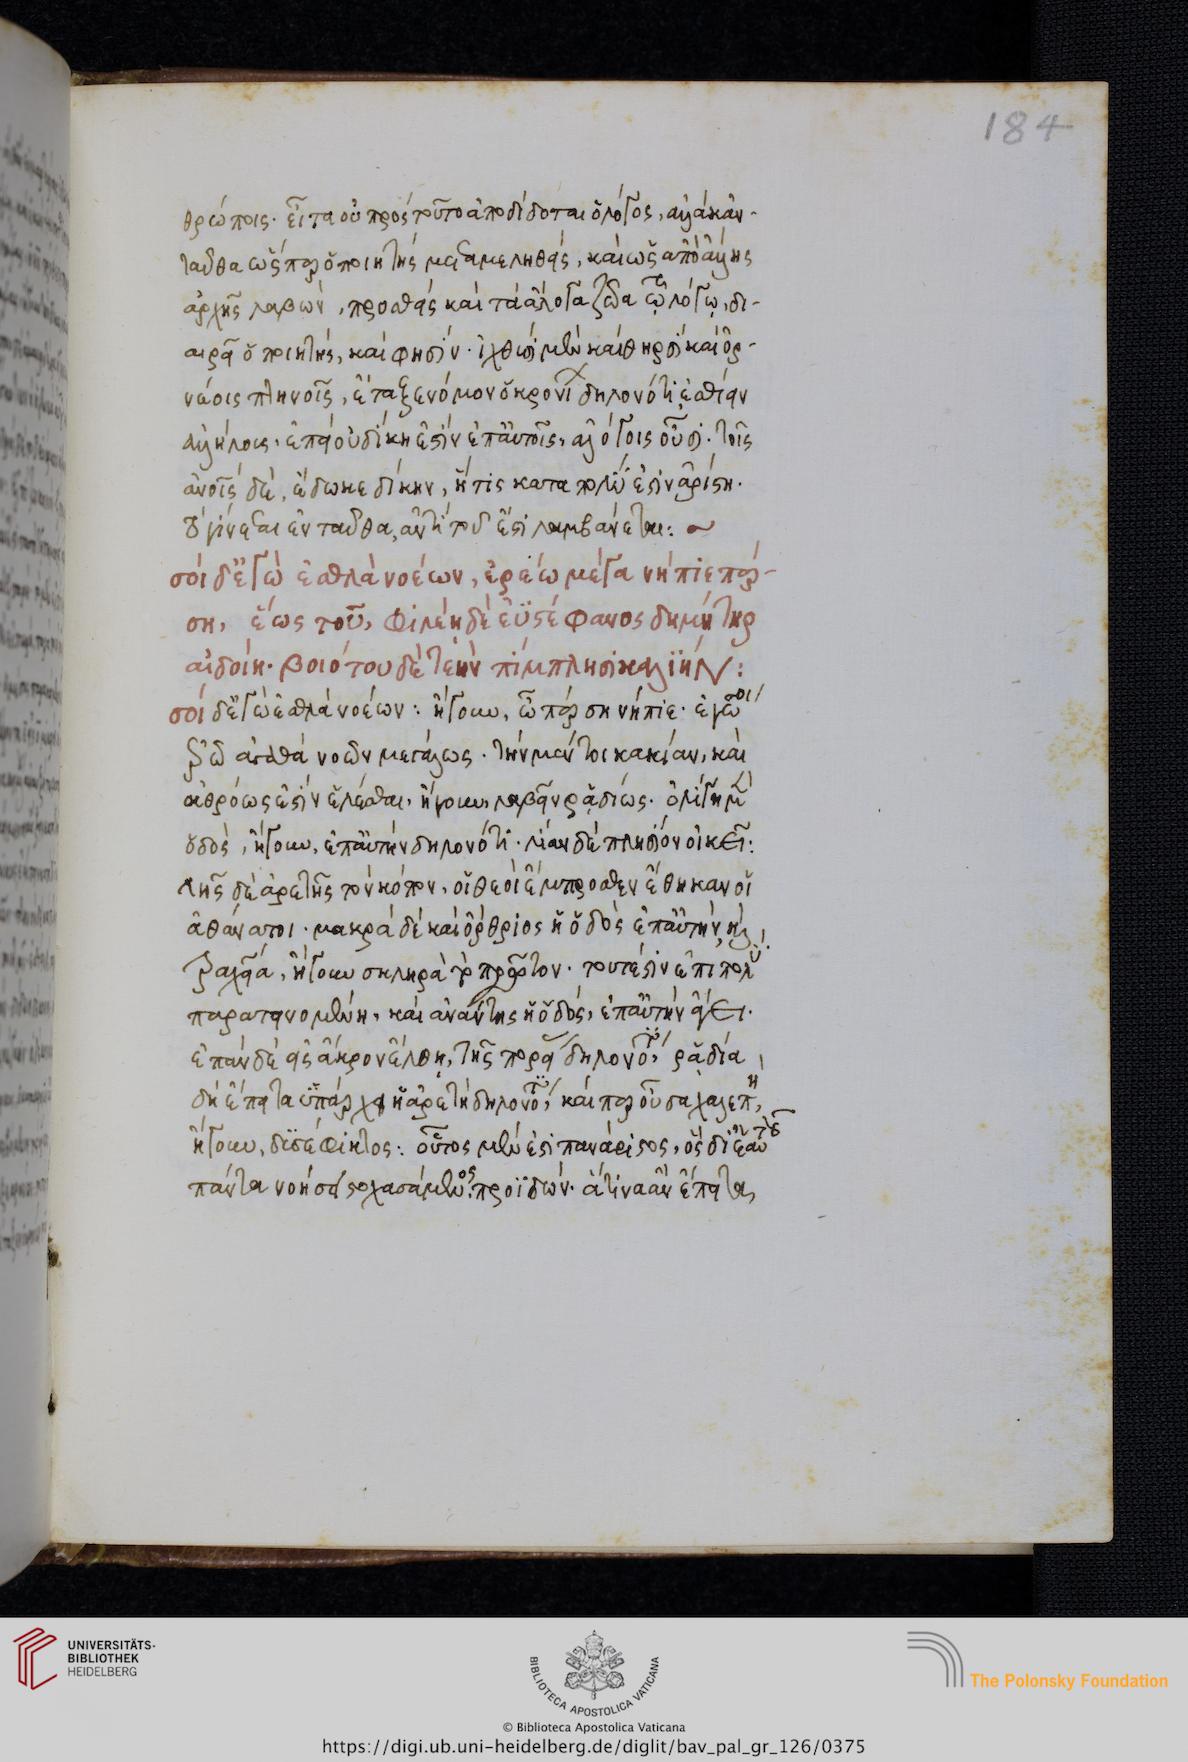 184
θρώποις. εἶτα οὐ πρὸς τοῦτο ἀποδίδοται ὁ λόγος, ἀλλὰ κἀν-
ταῦθα ὥσπερ ὁ ποιητὴς μεταμεληθεὶς, καὶ ὡς ἀπὸ ἄλλης
ἀρχῆς λαβὼν, προσθεὶς καὶ τὰ ἄλογα ζῶα τῶ λόγω, δι-
αιρεῖ ὁ ποιητὴς, καὶ φησίν. ἰχθύσι μὲν καὶ θηρσὶ καὶ ὀρ-
νέοις πτηνοῖς, ἔταξε νόμον ὁ κρονί δηλονότι ἐσθίειν
ἀλλήλους. ἐπεὶ οὐ δίκη ἐστὶν ἐπ' αὐτοῖς, ἀλόγοις οὖσι. τοῖς
ἀνοῖς δὲ, ἔδωκε δίκην, ἥτις κατα πολὺ ἐστὶν ἀρίστη.
γίνεται ἐνταῦθα, ἀντὶ τοῦ ἐστὶ λαμβάνεται:
σοὶ δ' ἐγὼ ἐσθλὰ νοέων, ἐρέω μέγα νήπιε πέρ-
ση, ἕως τοῦ, φιλέη δέ ἐϋστέφανος δημήτηρ
αἰδοίη. βιότου δὲ τεὴν πίμπλησι καλιήν:
σοὶ δ' ἐγὼ ἐσθλὰ νοέων: ἤγουν, ὦ πέρση νήπιε. ἐγὼ σοι
ἐρῶ ἀγαθὰ νοῶν μεγάλως. τὴν μέν τοι κακίαν, καὶ
ἀθρόως ἐστὶν ἑλέσθαι, ἤγουν, λαβεῖν ῥαδίως. ὀλίγη μὲν
ὁδὸς, ἤγουν, ἐπ' αὐτὴν δηλονότι. λίαν δὲ πλησίον οἰκεῖ:
τῆς δὲ ἀρετῆς τὸν κόπον, οἱ θεοὶ ἔμπροσθεν ἔθηκαν οἱ
ἀθάνατοι. μακρὰ δὲ καὶ ὄρθριος ἡ ὁδὸς ἐπ' αὐτὴν, καὶ
τραχεῖα, ἤγουν σκληρὰ τὸ πρῶτον. τουτέστιν ἐπὶ πολὺ
παρατεινομένη, καὶ ἀνάντης ἡ ὁδὸς, ἐπ' αὐτὴν ἄγει.
ἐπὰν δὲ εἰς ἄκρον ἔλθη, τῆς πορεί δηλονότι, ῥαδία
δὴ ἔπειτα ὑπάρχει ἡ ἀρετὴ δηλονότι, καὶ περ οὖσα χαλεπὴ,
ἤγουν, δυσέφικτος: οὗτος μὲν ἐστὶ πανάριστος, ὃς δι' ἑαυτοῦ
πάντα νοήσει στοχασάμενος. προϊδών. ἅτινα ἂν ἔπειτα,
UNIVERSITÄTS-
BIBLIOTHEK
HEIDELBERG
BIBLIOTECA APOSTOLICA VATICANA
The Polonsky Foundation
© Biblioteca Apostolica Vaticana
https://digi.ub.uni-heidelberg.de/diglit/bav_pal_gr_126/0375